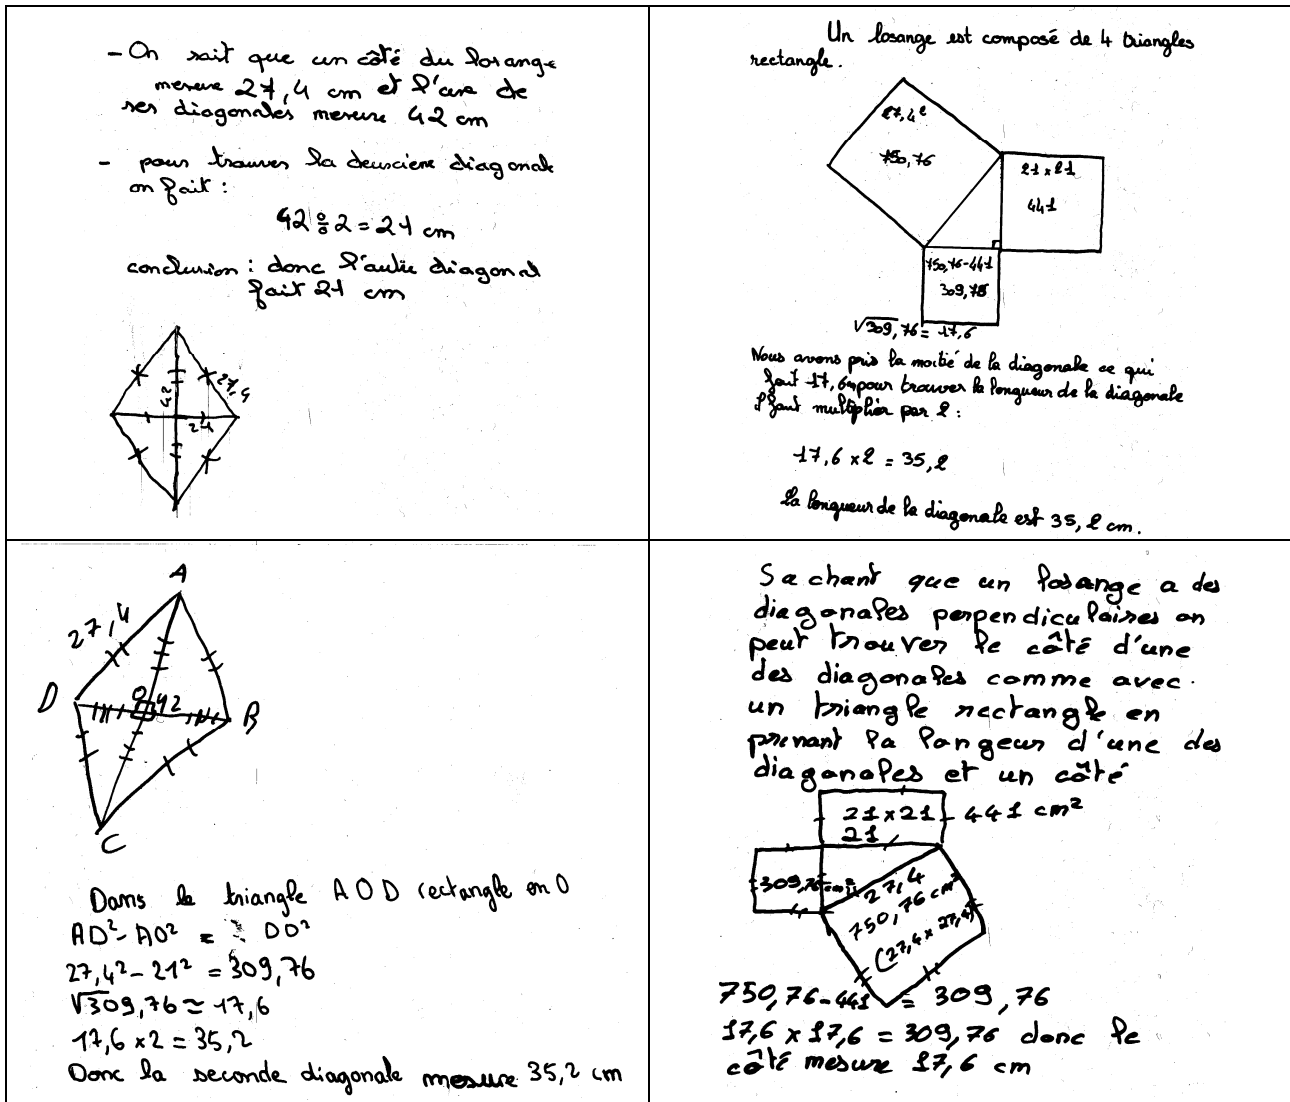 - On sait que un côté du losange
mesure 27,4 cm et l'une de
ses diagonales mesure 42 cm
- pour trouver la deuxciene diagonale
on fait :
42 ÷ 2 = 21 cm
conclusion : donc l'autre diagonal
fait 21 cm
27,4
42
21
Un losange est composé de 4 triangles
rectangle.
27,4²
750,76
21 x 21
441
750,76-441
309,76
√309,76 = 17,6
Nous avons pris la moitié de la diagonale ce qui
fait 17,6 pour trouver la longueur de la diagonale
il faut multiplier par 2 :
17,6 x 2 = 35,2
La longueur de la diagonale est 35,2 cm.
A
27,4
D
O
42
B
C
Dans le triangle AOD rectangle en O
AD² - AO² = DO²
27,4² - 21² = 309,76
√309,76 ≃ 17,6
17,6 x 2 = 35,2
Donc la seconde diagonale mesure 35,2 cm
Sachant que un losange a des
diagonales perpendiculaires on
peut trouver le côté d'une
des diagonales comme avec
un triangle rectangle en
prenant la longeur d'une des
diagonales et un côté
21 x 21 441 cm²
21
309,76 cm²
27,4
750,76 cm²
(27,4 x 27,4)
750,76 - 441 = 309,76
17,6 x 17,6 = 309,76 donc le
côté mesure 17,6 cm